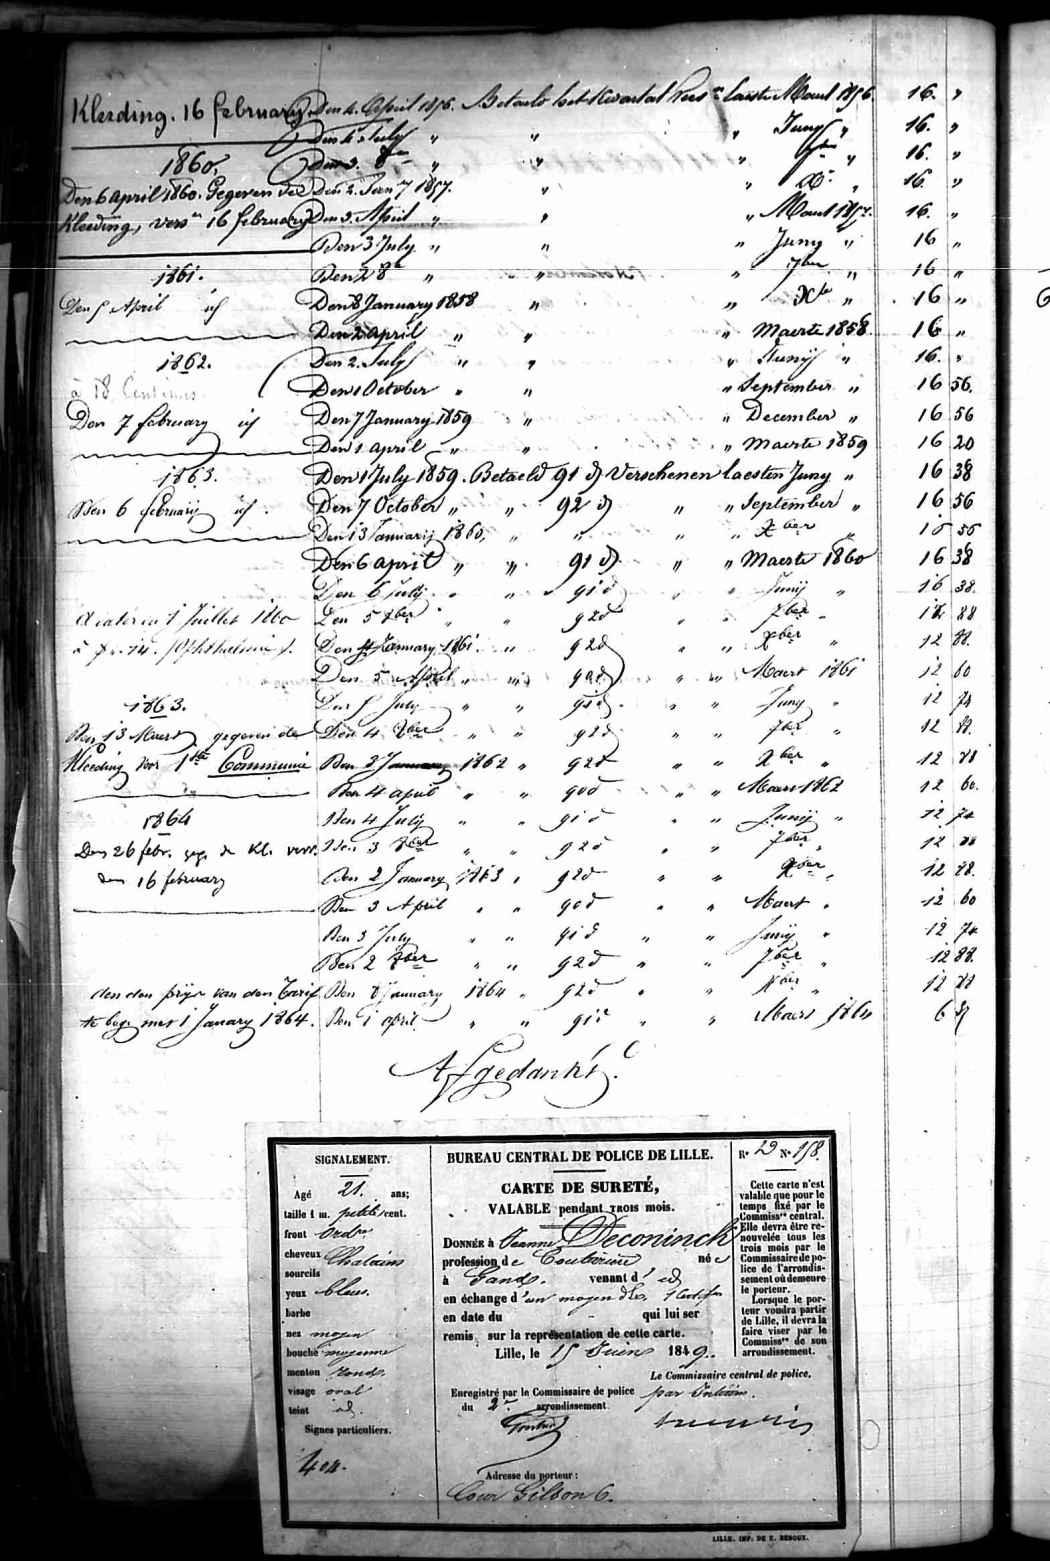 Kleeding. 16 february
1860.
Den 6 April 1860. Gegeven de
Kleeding, vers.n 16 february
1861.
Den 5 April id
1862.
à 18 Centimes
Den 7 february id
1863.
Den 6 february id.
à dater du 1 Juillet 1860
à fr. 14. (Ophthalmie).
1863.
Den 13 Maert gegeven de
Kleeding voor 1ste Communie
1864
Den 26 febr. geg. de Kl. versc.
den 16 february
den prijs van den Tarif
te beg. met 1 January 1864.
Den 4. April 1856. Betaeld het Kwartal Vers.n laeste Maert 1856. 16. "
Den 4 July " " " Juny " 16. "
Den 3. 8bre " " " 7bre " 16. "
Den 2. Jan 1857. " " Xbr " 16. "
Den 3. April " " " Maert 1857. 16. "
Den 3 July " " " Juny " 16 "
Den 2 8br " " " 7ber " 16 "
Den 8 January 1858 " " Xbr " 16 "
Den 2 april " " " Maerte 1858. 16 "
Den 2. July " " " Junij " 16. "
Den 1 October " " " September " 16 56.
Den 7 January 1859 " " December " 16 56
Den 1 april " " " Maerte 1859 16 20
Den 1 July 1859. Betaeld 91 d Verschenen laesten Juny " 16 38
Den 7 October " " 92 d " " September " 16 56
Den 13 Januarij 1860, " " " " Xber " 16 56
Den 6 april " " 91 d " " Maerte 1860 16 38
Den 6 July " " 91 d " " Junij " 16 38.
Den 5 8ber " " 92 d " " 7ber " 12 88
Den 4 January 1861. " 92 d " " Xber " 12 88.
Den 5 April " " 90 d " " Maert 1861 12 60
Den 5 July " " 91 d " " Juny " 12 74
Den 4 8ber " " 92 d " " 7ber " 12 88.
Den 3 January 1862 " 92 d " " Xber " 12 88
Den 4 april " " 90 d " " Maert 1862 12 60.
Den 4 July " " 91 d " " Junij " 12 74
Den 3 8ber " " 92 d " " 7ber " 12 88
Den 2 January 1863 " 92 d " " Xber " 12 88.
Den 3 April " " 90 d " " Maert " 12 60
Den 3 July " " 91 d " " Junij " 12 74
Den 2 8ber " " 92 d " " 7ber " 12 88.
Den 8 January 1864 " 92 d " " Xber " 12 88
Den 1 april " " 91 d " " Maert 1864 6
Afgedankt.
SIGNALEMENT.
Agé 21. ans;
taille 1 m. petite cent.
front ordre
cheveux Chatains
sourcils
yeux bleus.
barbe
nez moyen
bouche moyenne
menton rond.
visage oval
teint id.
Signes particuliers.
404.
BUREAU CENTRAL DE POLICE DE LILLE.
CARTE DE SURETÉ,
VALABLE pendant TROIS mois.
DONNÉE À Jeanne Deconinck
profession de Couturière née
à Gand. venant d' id
en échange d'un moyen de
en date du qui lui ser
remis sur la représentation de cette carte.
Lille, le 15 Juin 1849.
Le Commissaire central de police,
par Intérim.
Enregistré par le Commissaire de police
du 2e arrondissement
Adresse du porteur :
Cour Gilson 6.
Re 29 No 158.
Cette carte n'est
valable que pour le
temps fixé par le
Commissre central.
Elle devra être re-
nouvelée tous les
trois mois par le
Commissaire de po-
lice de l'arrondis-
sement où demeure
le porteur.
Lorsque le por-
teur voudra partir
de Lille, il devra la
faire viser par le
Commissre de son
arrondissement.
LILLE. IMP. DE E. REBOUX.